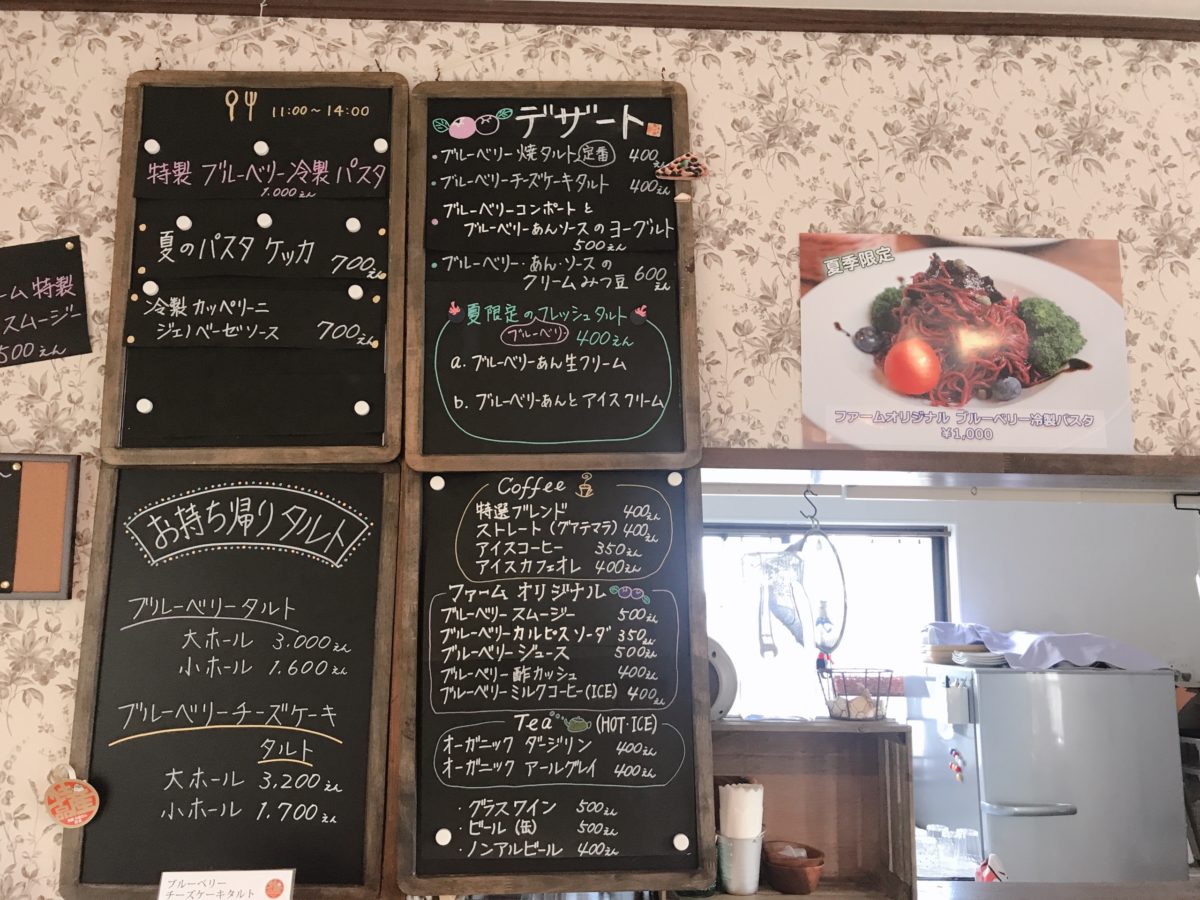 11:00～14:00
特製 ブルーベリー冷製パスタ
1.000えん
夏のパスタ ケッカ 700えん
冷製 カッペリーニ
ジェノベーゼソース 700えん
デザート
・ブルーベリー焼タルト 定番 400えん
・ブルーベリーチーズケーキタルト 400えん
・ブルーベリーコンポートと
ブルーベリーあんソースのヨーグルト
500えん
・ブルーベリー・あん・ソースの
クリームみつ豆 600えん
夏限定のフレッシュタルト
ブルーベリー 400えん
a. ブルーベリーあん生クリーム
b. ブルーベリーあんとアイスクリーム
ム特製
スムージー
500えん
夏季限定
ファームオリジナル ブルーベリー冷製パスタ
¥1,000
お持ち帰りタルト
ブルーベリータルト
大ホール 3.000えん
小ホール 1.600えん
ブルーベリーチーズケーキ
タルト
大ホール 3,200えん
小ホール 1.700えん
ブルーベリー
チーズケーキタルト
Coffee
特選ブレンド 400えん
ストレート(グアテマラ) 400えん
アイスコーヒー 350えん
アイスカフェオレ 400えん
ファーム オリジナル
ブルーベリー スムージー 500えん
ブルーベリーカルピスソーダ 350えん
ブルーベリー ジュース 500えん
ブルーベリー酢カッシュ 400えん
ブルーベリーミルクコーヒー(ICE) 400えん
Tea (HOT・ICE)
オーガニック ダージリン 400えん
オーガニック アールグレイ 400えん
・グラスワイン 500えん
・ビール(缶) 500えん
・ノンアルビール 400えん